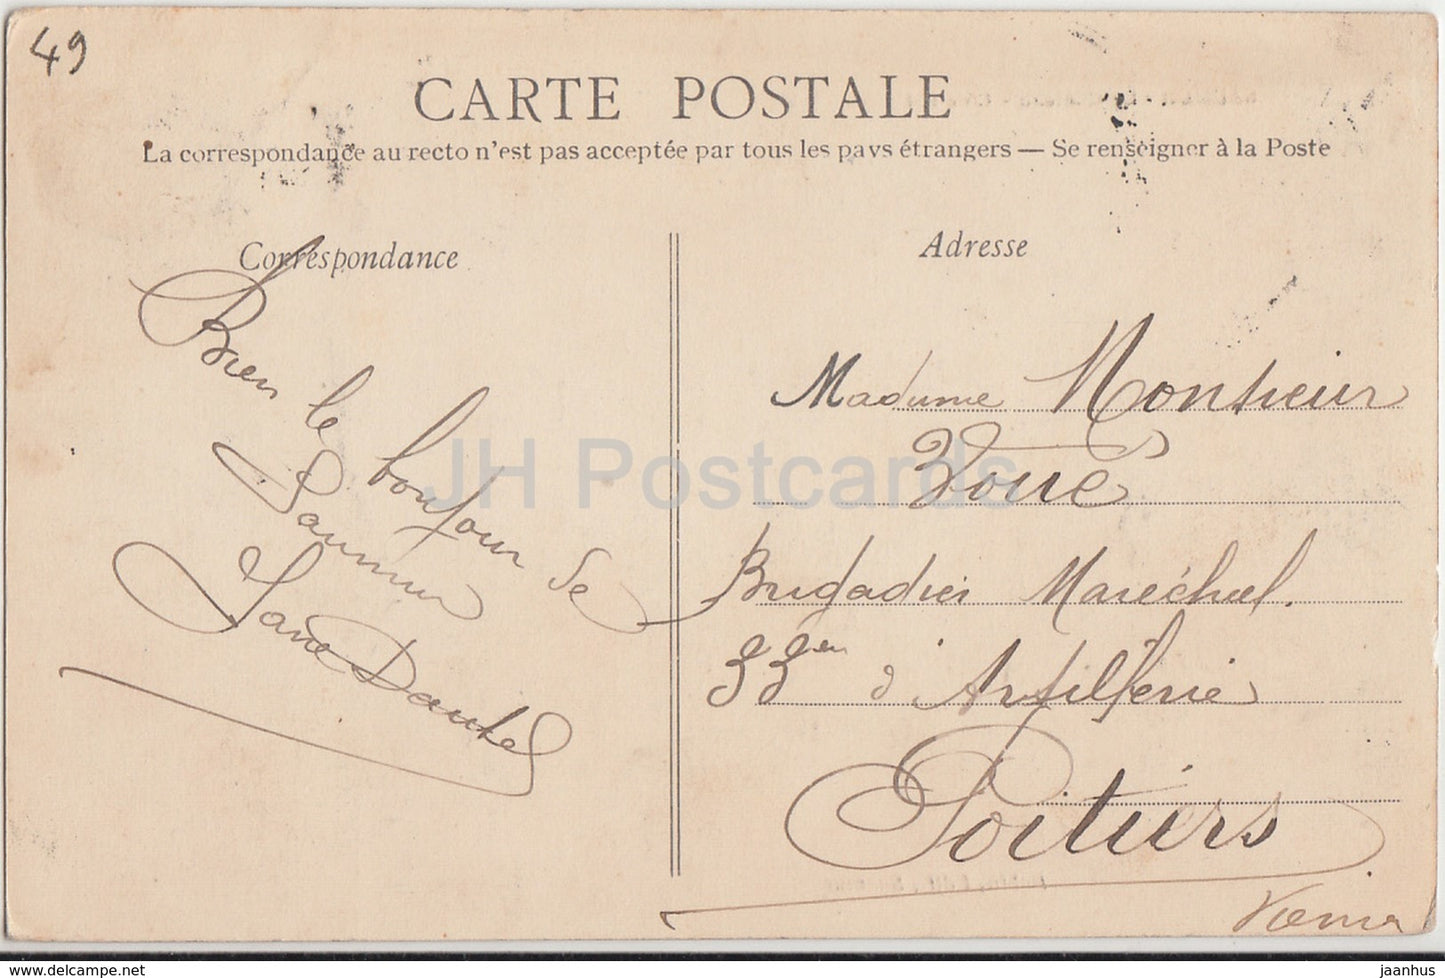 49
CARTE POSTALE
La correspondance au recto n'est pas acceptée par tous les pays étrangers — Se renseigner à la Poste
Correspondance
Bien le bonjour de
Saumur
Adresse
Madame Monsieur
Zoué
Brigadier Maréchal.
33em d'Artillerie
Poitiers
Vienna
JH Postcards
jaanhus